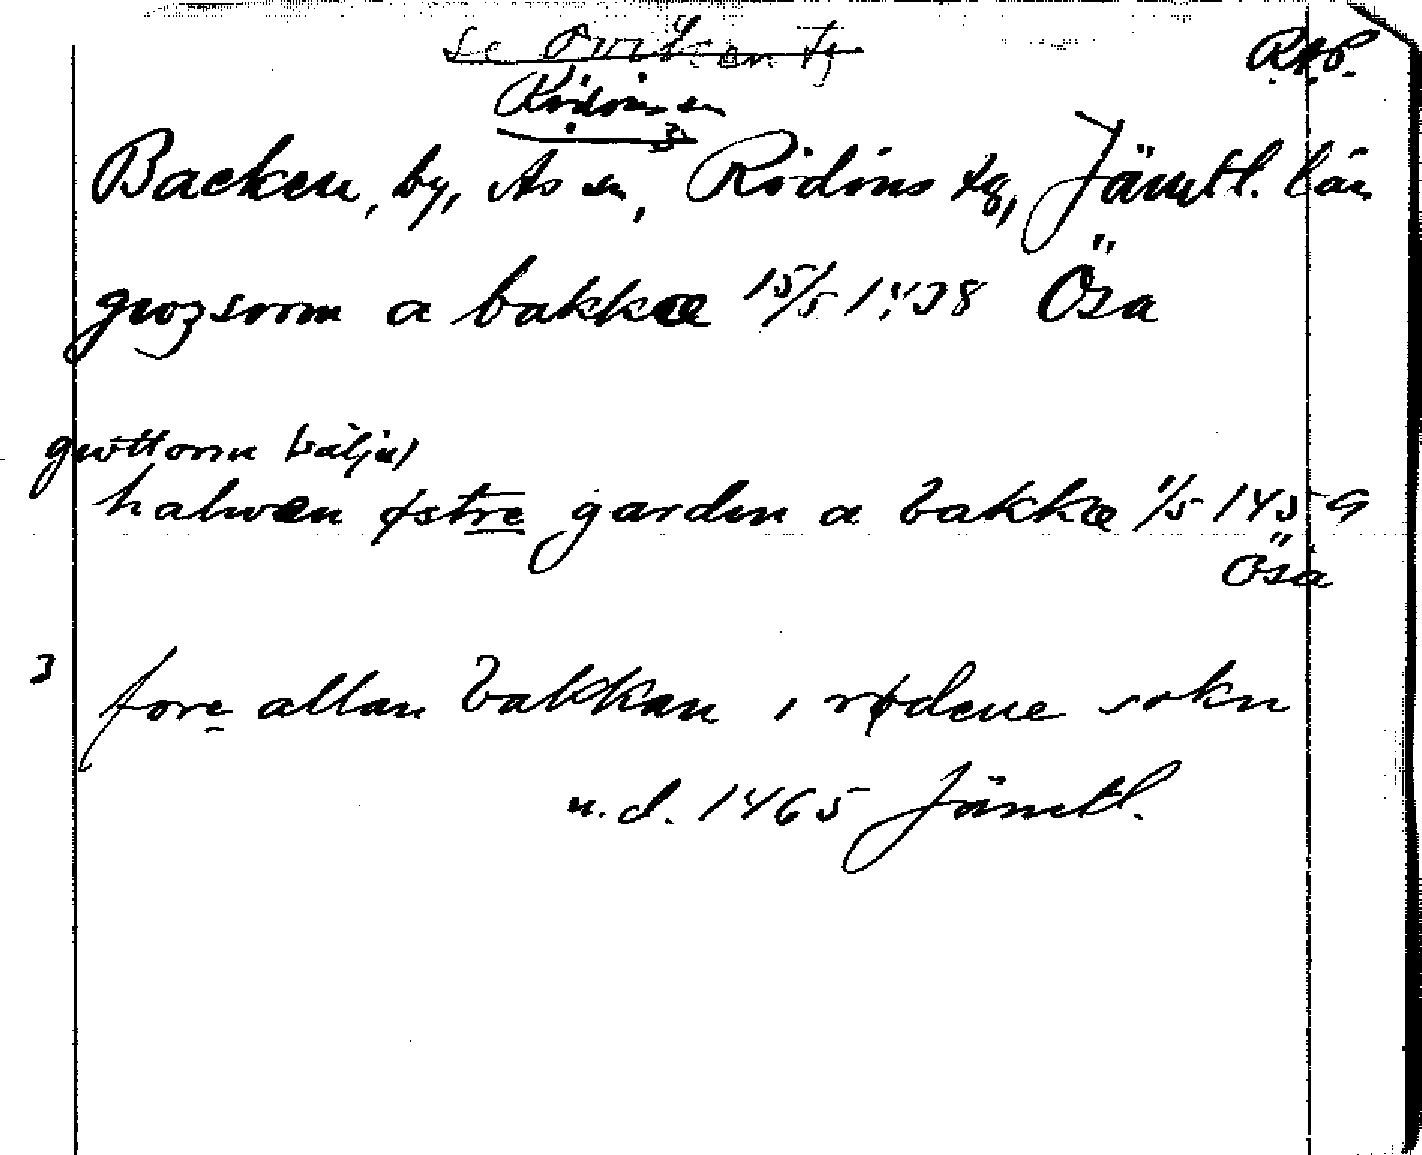 se Oviken tg
Rödöns sn
3
R.A.P.
Backen, by, Ås sn, Rödöns tg, Jämtl. län
guozsorm a bakkæ 15/5 1438 Ösa
guttorm säljer
halwæn østre garden a bakkæ 1/5 1459
Ösa
3 fore allan bakkan i rødene sokn
u.d. 1465 Jämtl.